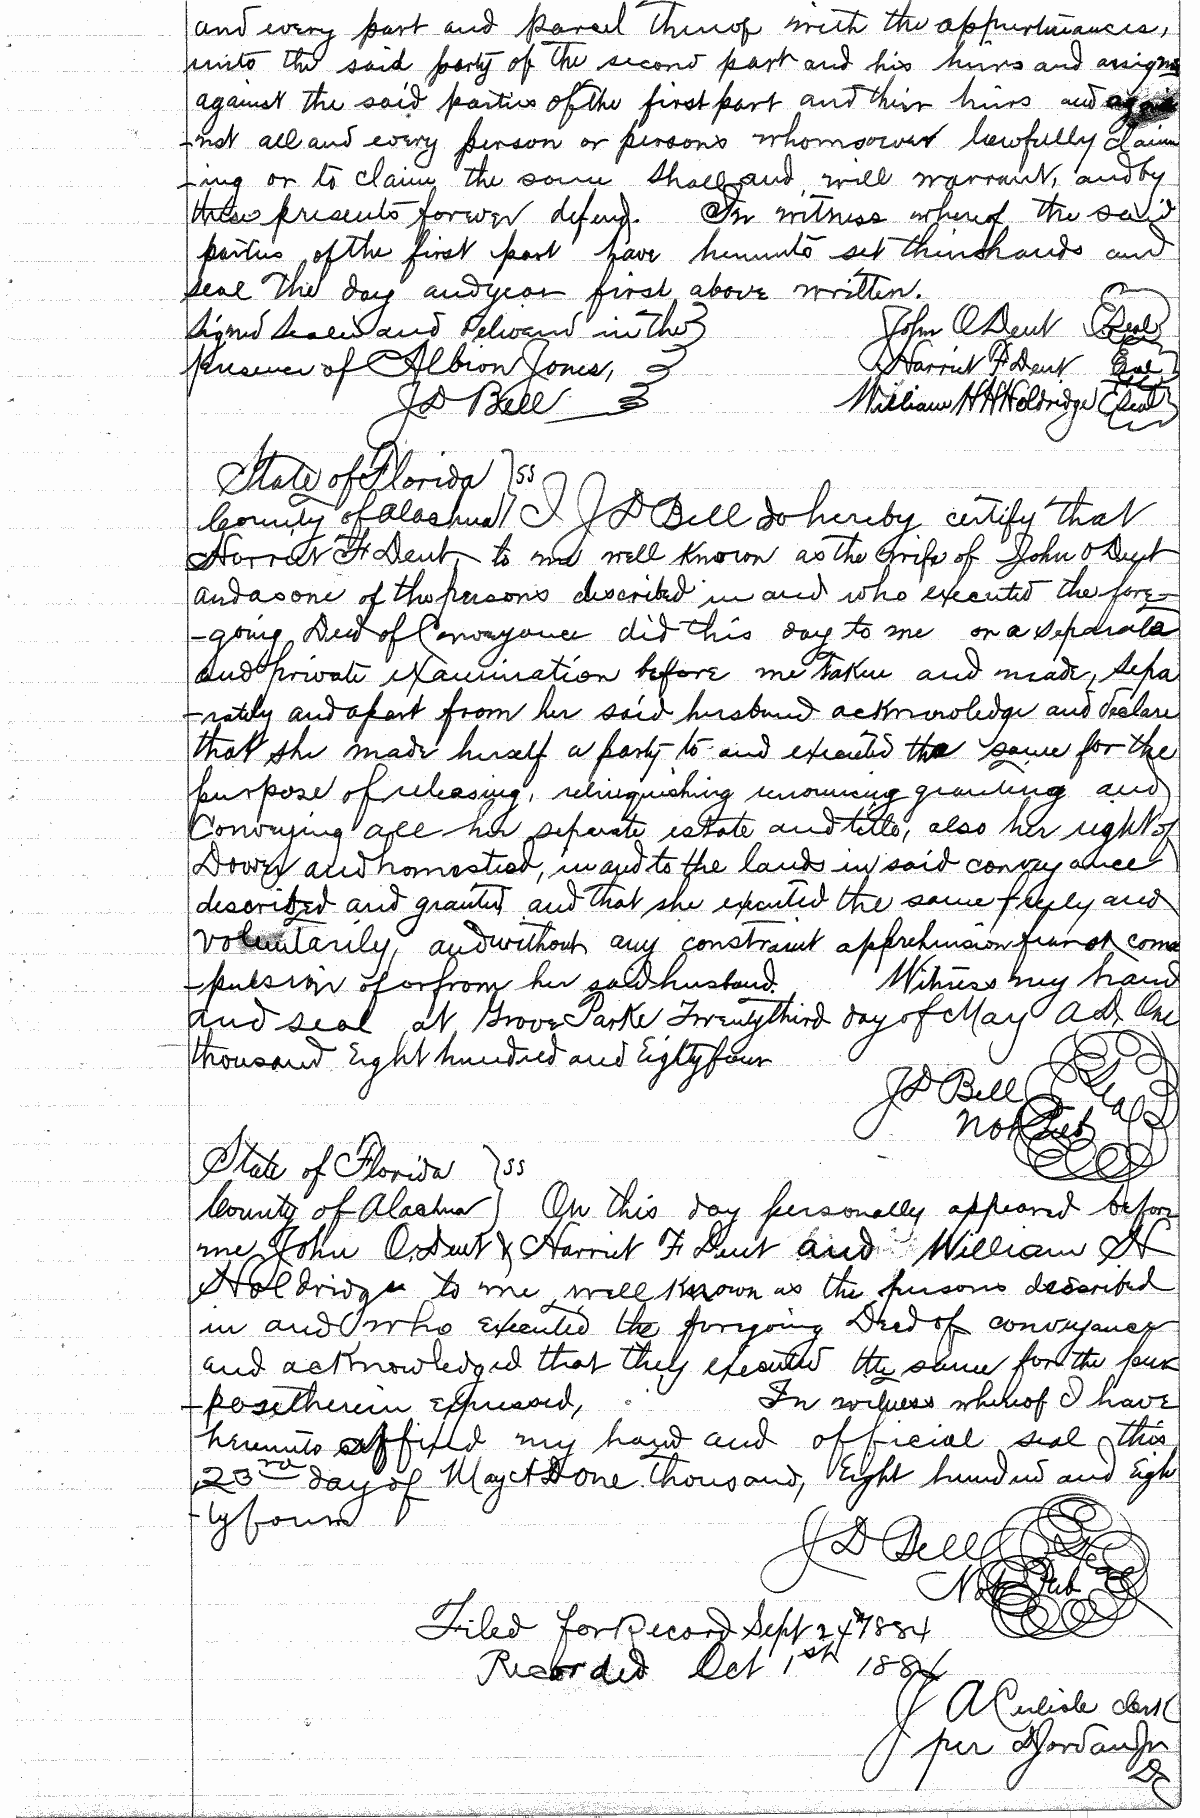 and every part and parcel thereof with the appurtenances,
unto the said party of the second part and his heirs and assigns
against the said parties of the first part and their heirs and agai
-nst all and every person or persons whomsoever lawfully claim
-ing or to claim the same shall and will warrant, and by
these presents forever defend. In witness whereof the said
parties of the first part have hereunto set their hands and
seal the day and year first above written.
Signed Sealed and Delivered in the John O Dent Seal
presence of Albion Jones, Harriet F Dent Seal
J D Bell William H H Holdridge Seal
State of Florida } ss
County of Alachua } I J D Bell do hereby certify that
Harriet F Dent, to me well known as the wife of John O Dent
and as one of the persons described in and who executed the fore-
-going Deed of Conveyance did this day to me on a separate
and private examination before me taken and made, sepa
-rately and apart from her said husband acknowledge and declare
that she made herself a party to and executed the same for the
purpose of releasing, relinquishing renouncing granting and
Conveying all her separate estate and title, also her right of
Dower and homestead, in and to the lands in said conveyance
described and granted and that she executed the same freely and
voluntarily, and without any constraint apprehension fear or com
-pulsion of or from her said husband. Witness my hand
and seal at Grove Park Twenty third day of May A.D. One
thousand Eight hundred and Eighty four
J D Bell Seal
Not Pub
State of Florida } ss
County of Alachua } On this day personally appeared before
me John O. Dent & Harriet F Dent and William H
Holdridge to me well known as the persons described
in and who executed the foregoing Deed of conveyance
and acknowledged that they executed the same for the pur
-pose therein expressed, In witness whereof I have
hereunto affixed my hand and official seal this
23rd day of May A D One thousand, Eight hundred and Eigh
-ty four
J D Bell Seal
Not Pub
Filed for Record Sept 24th 1884
Recorded Oct 1st 1884
J A Carlisle Clerk
per D Jordan Jr
DC